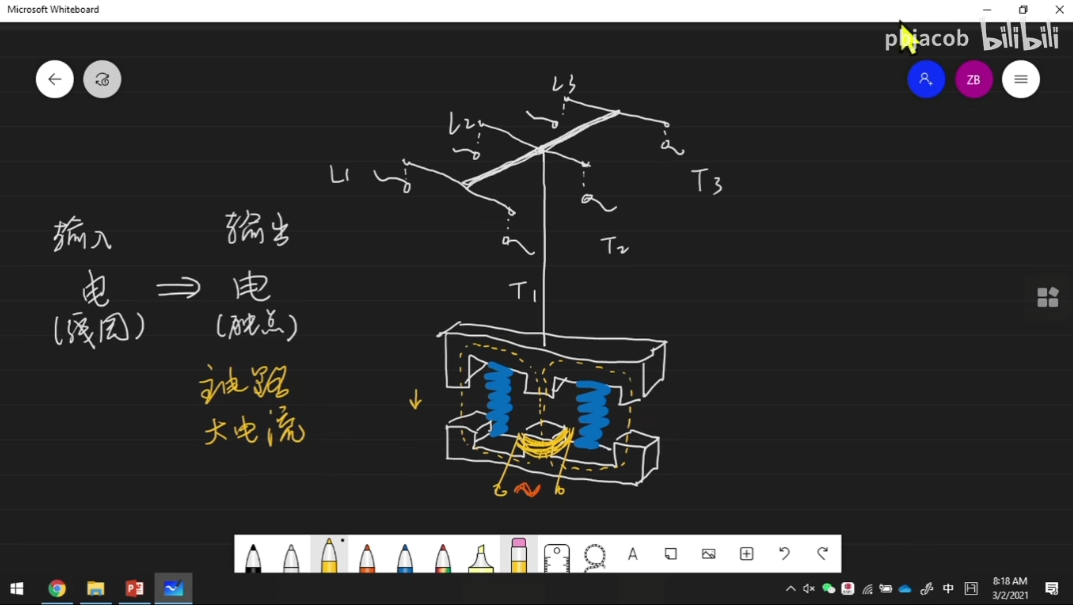 Microsoft Whiteboard
pbjacob bilibili
ZB
L3
L2
L1
T3
T2
T1
输入 输出
电 ⇒ 电
(线圈) (触点)
主电路
大电流
A
中
8:18 AM
3/2/2021